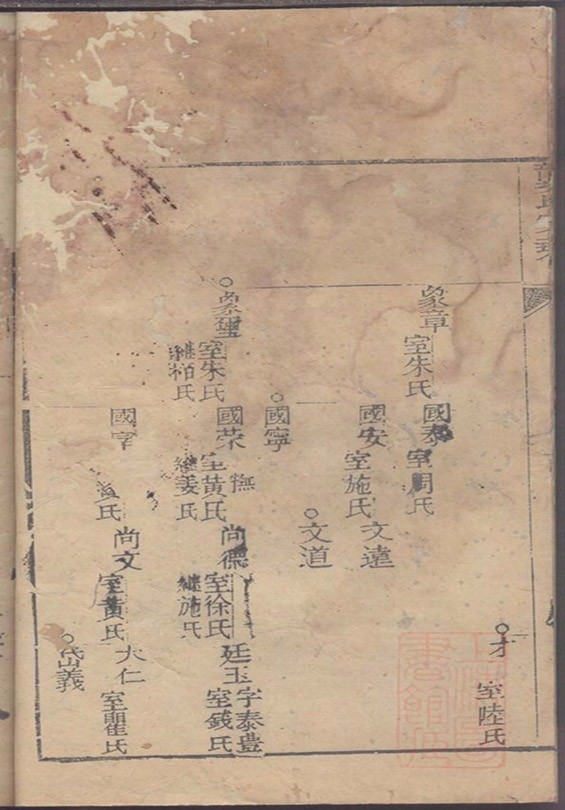 才
室陸氏
象章
室朱氏
國泰
室周氏
國安
室施氏
文遠
文道
國寧
象璽
室朱氏
繼柏氏
國荣
撫
室黃氏
繼姜氏
尚德
室徐氏
繼施氏
廷玉
字泰豊
室錢氏
國
氏
尚文
室黃氏
大仁
氏
岱義